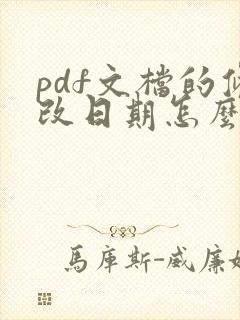 pdf文檔的
改日期怎麼
馬庫斯-威廉